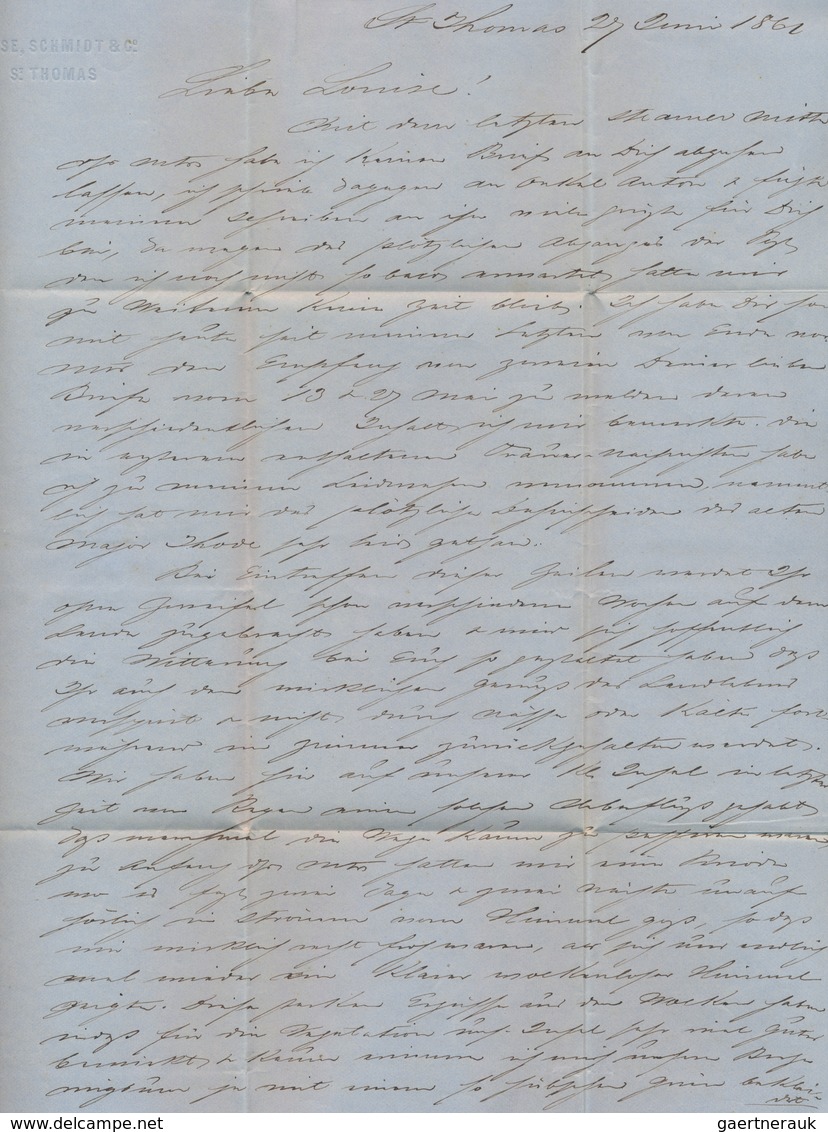 SE, SCHMIDT & Co
St THOMAS
St Thomas 27 Juni 1861
Liebe Louise!
Mit dem letzten Steamer Mitte
dss Mts habe ich keinen Brief an Dich abgehen
lassen, ich schrieb dagegen an Onkel Anton & fügte
meinem Schreiben an ihn viele Grüße für Dich
bei, da wegen des plötzlichen Abganges der
den ich noch nicht so bald erwartet hatte mir
zu Weiterem keine Zeit blieb. Ich habe Dir so
mit heute seit meinem Letzten von Ende
den Empfang von zweien Deiner lieben
Briefe vom 13 & 27 Mai zu melden deren
verschiedentlichen Inhalt ich mir bemerkte. Die
in ersterem enthaltenen Trauer-Nachrichten habe
ich zu meinem Leidwesen vernommen, nament
lich hat mir das plötzliche Hinscheiden des alten
Major Thode sehr leid gethan.
Bei Eintreffen dieser Zeilen werdet Ihr
ohne Zweifel schon verschiedene Wochen auf dem
Lande zugebracht haben & wird sich hoffentlich
die Witterung bei Euch so gestaltet haben daß
Ihr auch den wirklichen Genuß des Landlebens
verspürt & nicht durch Nässe oder Kälte fort
während im Zimmer zurückgehalten werdet.
Wir haben hier auf unserer Insel in letzter
Zeit von Regen einen solchen Ueberfluß gehabt
daß manchmal die Wege kaum zu passiren waren
zu Anfang dss Mts hatten wir eine Periode
wo es fast zwei Tage & zwei Nächte unauf
hörlich in Strömen vom Himmel goß, so daß
wir wirklich recht froh waren, als sich uns endlich
mal wieder ein klarer wolkenloser Himmel
zeigte. Diese starken Ergüsse aus den Wolken haben
indeß für die Vegetation uns. Insel sehr viel Gutes
bewirkt & kaum erinnere ich mich unsere Berge
je mit einem so hübschen Grün beklei-
det
gaertnerauk